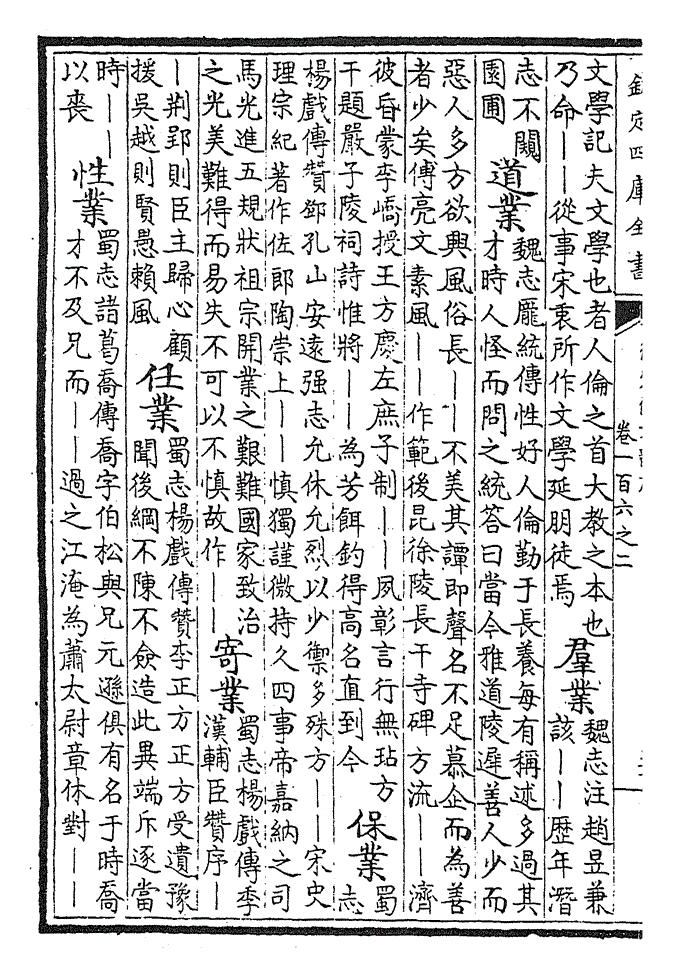 欽定四庫全書
卷一百六之二
文學記夫文學也者人倫之首大教之本也
乃命——從事宋衷所作文學延朋徒焉
羣業
魏志注趙昱兼
該——歷年潛
志不闚
園圃
道業
魏志龐統傳性好人倫勤于長養每有稱述多過其
才時人怪而問之統答曰當今雅道陵遲善人少而
惡人多方欲興風俗長——不美其譚即聲名不足慕企而為善
者少矣傅亮文素風——作範後昆徐陵長干寺碑方流——濟
彼昏蒙李嶠授王方慶左庶子制——夙彰言行無玷方
干題嚴子陵祠詩惟將——為芳餌釣得高名直到今
保業
蜀
志
楊戲傳贊鄧孔山安遠强志允休允烈以少禦多殊方——宋史
理宗紀著作佐郎陶崇上——慎獨謹微持久四事帝嘉納之司
馬光進五規狀祖宗開業之艱難國家致治
之光美難得而易失不可以不慎故作——
寄業
蜀志楊戲傳季
漢輔臣贊序—
—荆郢則臣主歸心顧
援吳越則賢愚賴風
任業
蜀志楊戲傳贊李正方正方受遺豫
聞後綱不陳不僉造此異端斥逐當
時——
以喪
性業
蜀志諸葛喬傳喬字伯松與兄元遜俱有名于時喬
才不及兄而——過之江淹為蕭太尉章休對——